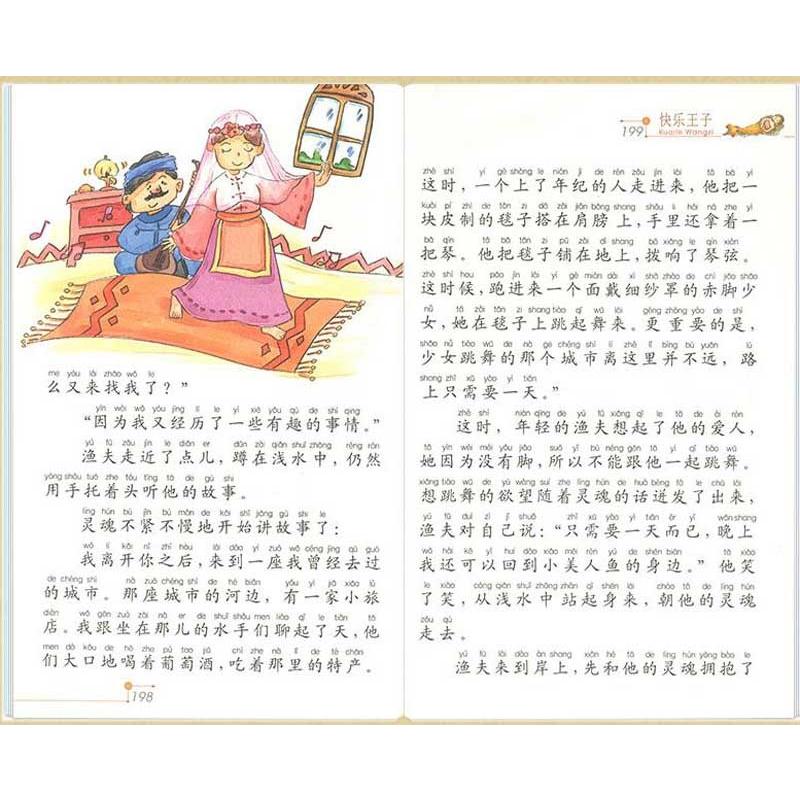 me yòu lái zhǎo wǒ le
么又来找我了？”
yīn wèi wǒ yòu jīng lì le yì xiē yǒu qù de shì qing
“因为我又经历了一些有趣的事情。”
yú fū zǒu jìn le diǎn er dūn zài qiǎn shuǐ zhōng réng rán
渔夫走近了点儿，蹲在浅水中，仍然
yòng shǒu tuō zhe tóu tīng tā de gù shi
用手托着头听他的故事。
líng hún bù jǐn bú màn de kāi shǐ jiǎng gù shi le
灵魂不紧不慢地开始讲故事了：
wǒ lí kāi nǐ zhī hòu lái dào yí zuò wǒ céng jīng qù guo
我离开你之后，来到一座我曾经去过
de chéng shì nà zuò chéng shì de hé biān yǒu yì jiā xiǎo lǚ
的城市。那座城市的河边，有一家小旅
diàn wǒ gēn zuò zài nà er de shuǐ shǒu men liáo qǐ le tiān tā
店。我跟坐在那儿的水手们聊起了天，他
men dà kǒu de hē zhe pú tao jiǔ chī zhe nà lǐ de tè chǎn
们大口地喝着葡萄酒，吃着那里的特产。
198
199 快乐王子
Kuaile Wangzi
zhè shí yí gè shàng le nián jì de rén zǒu jìn lái tā bǎ yí
这时，一个上了年纪的人走进来，他把一
kuài pí zhì de tǎn zi dā zài jiān bǎng shang shǒu li hái ná zhe yì
块皮制的毯子搭在肩膀上，手里还拿着一
bǎ qín tā bǎ tǎn zi pū zài dì shang bō xiǎng le qín xián
把琴。他把毯子铺在地上，拨响了琴弦。
zhè shí hou pǎo jìn lái yí gè miàn dài xì shā zhào de chì jiǎo shào
这时候，跑进来一个面戴细纱罩的赤脚少
nǚ tā zài tǎn zi shang tiào qǐ wǔ lái gèng zhòng yào de shì
女，她在毯子上跳起舞来。更重要的是，
shào nǚ tiào wǔ de nà ge chéng shì lí zhè lǐ bìng bù yuǎn lù
少女跳舞的那个城市离这里并不远，路
shang zhǐ xū yào yì tiān
上只需要一天。”
zhè shí nián qīng de yú fū xiǎng qǐ le tā de ài rén
这时，年轻的渔夫想起了他的爱人，
tā yīn wèi méi yǒu jiǎo suǒ yǐ bù néng gēn tā yì qǐ tiào wǔ
她因为没有脚，所以不能跟他一起跳舞。
xiǎng tiào wǔ de yù wàng suí zhe líng hún de huà bèng fā le chū lái
想跳舞的欲望随着灵魂的话迸发了出来，
yú fū duì zì jǐ shuō zhǐ xū yào yì tiān ér yǐ wǎn shang
渔夫对自己说：“只需要一天而已，晚上
wǒ hái kě yǐ huí dào xiǎo měi rén yú de shēn biān tā xiào
我还可以回到小美人鱼的身边。”他笑
le xiào cóng qiǎn shuǐ zhōng zhàn qǐ shēn lái cháo tā de líng hún
了笑，从浅水中站起身来，朝他的灵魂
zǒu qù
走去。
yú fū lái dào àn shang xiān hé tā de líng hún yōng bào le
渔夫来到岸上，先和他的灵魂拥抱了